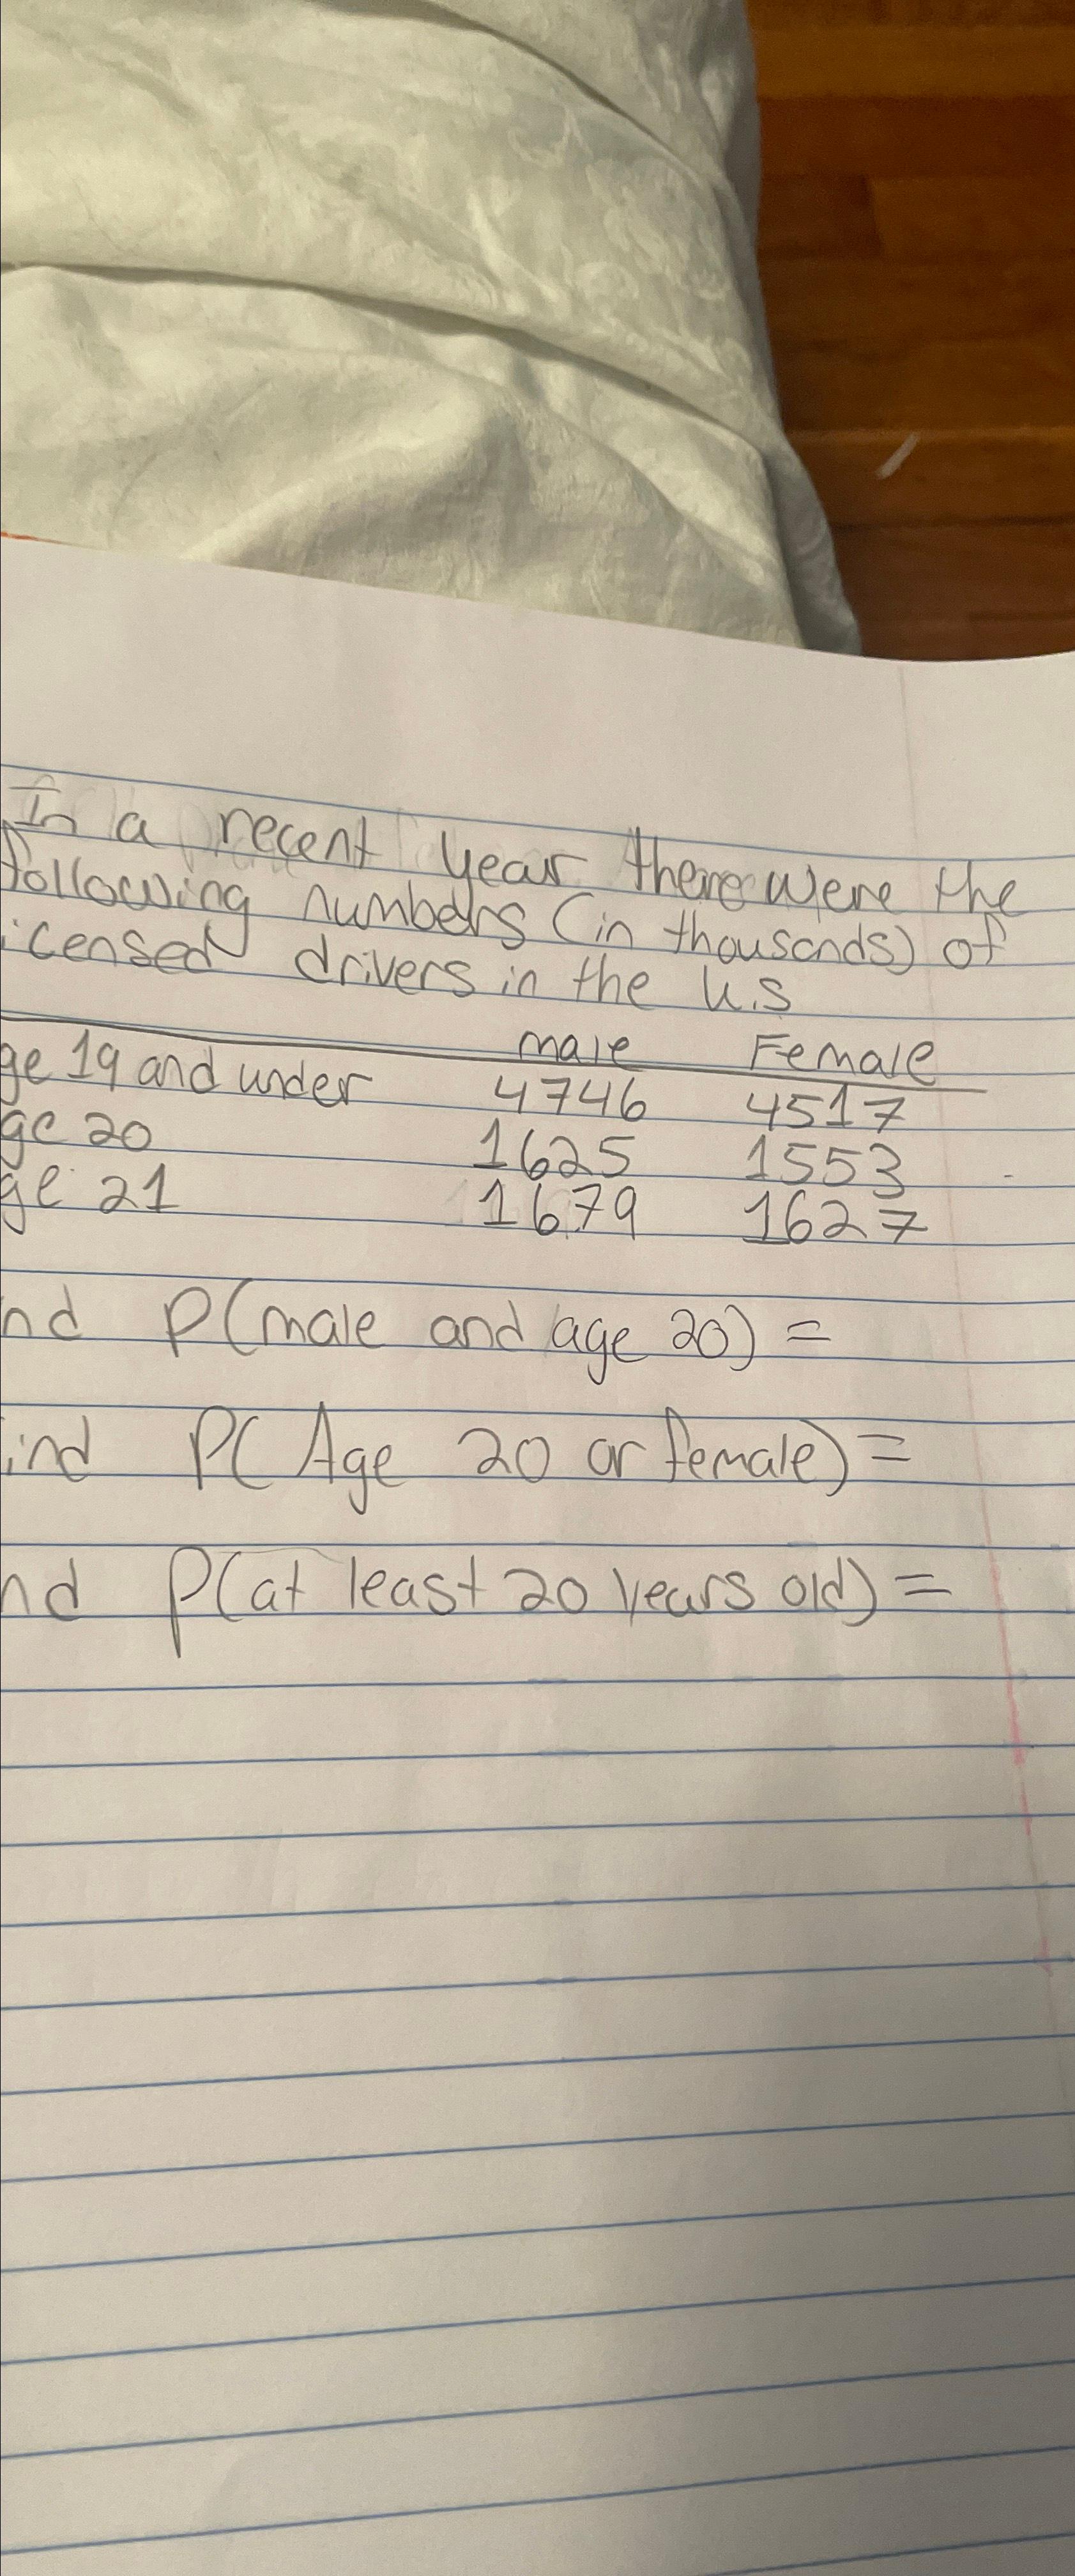 In a recent year there were the
following numbers (in thousands) of
icensed drivers in the U.S
male Female
ge 19 and under 4746 4517
ge 20 1625 1553
ge 21 1679 1627
nd P(male and age 20) =
ind P(Age 20 or female) =
nd P(at least 20 years old) =